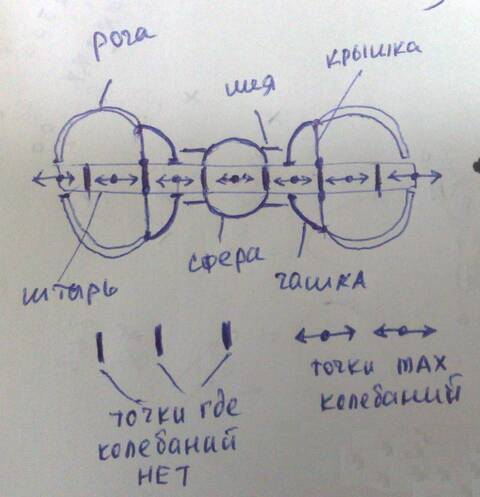 рога
шея
крышка
штырь
сфера
чашка
точки где
колебаний
НЕТ
точки MAX
колебаний